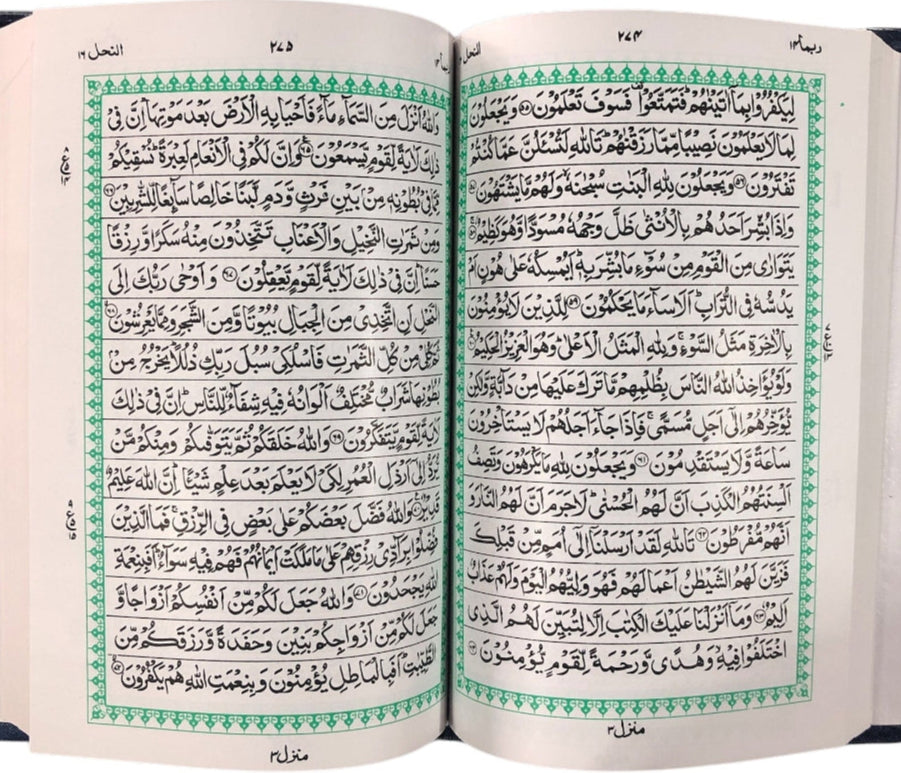 ربما ١٤
٢٧٤
النحل
لِيَكْفُرُوْا بِمَاۤ اٰتَيْنٰهُمْ ؕ فَتَمَتَّعُوْا ۫ فَسَوْفَ تَعْلَمُوْنَ ﴿۵۵﴾ وَ يَجْعَلُوْنَ
لِمَا لَا يَعْلَمُوْنَ نَصِيْبًا مِّمَّا رَزَقْنٰهُمْ ؕ تَاللّٰهِ لَتُسْـَٔلُنَّ عَمَّا كُنْتُمْ
تَفْتَرُوْنَ ﴿۵۶﴾ وَ يَجْعَلُوْنَ لِلّٰهِ الْبَنٰتِ سُبْحٰنَهٗ ۙ وَ لَهُمْ مَّا يَشْتَهُوْنَ ﴿۵۷﴾
وَ اِذَا بُشِّرَ اَحَدُهُمْ بِالْاُنْثٰى ظَلَّ وَجْهُهٗ مُسْوَدًّا وَّ هُوَ كَظِيْمٌ ﴿۵۸﴾
يَتَوَارٰى مِنَ الْقَوْمِ مِنْ سُوْٓءِ مَا بُشِّرَ بِهٖ ؕ اَيُمْسِكُهٗ عَلٰى هُوْنٍ اَمْ
يَدُسُّهٗ فِي التُّرَابِ ؕ اَلَا سَآءَ مَا يَحْكُمُوْنَ ﴿۵۹﴾ لِلَّذِيْنَ لَا يُؤْمِنُوْنَ
بِالْاٰخِرَةِ مَثَلُ السَّوْءِ ۚ وَ لِلّٰهِ الْمَثَلُ الْاَعْلٰى ؕ وَ هُوَ الْعَزِيْزُ الْحَكِيْمُ ﴿۶۰﴾
وَ لَوْ يُؤَاخِذُ اللّٰهُ النَّاسَ بِظُلْمِهِمْ مَّا تَرَكَ عَلَيْهَا مِنْ دَآبَّةٍ وَّ لٰكِنْ
يُّؤَخِّرُهُمْ اِلٰٓى اَجَلٍ مُّسَمًّى ۚ فَاِذَا جَآءَ اَجَلُهُمْ لَا يَسْتَاْخِرُوْنَ
سَاعَةً وَّ لَا يَسْتَقْدِمُوْنَ ﴿۶۱﴾ وَ يَجْعَلُوْنَ لِلّٰهِ مَا يَكْرَهُوْنَ وَ تَصِفُ
اَلْسِنَتُهُمُ الْكَذِبَ اَنَّ لَهُمُ الْحُسْنٰى ؕ لَا جَرَمَ اَنَّ لَهُمُ النَّارَ وَ
اَنَّهُمْ مُّفْرَطُوْنَ ﴿۶۲﴾ تَاللّٰهِ لَقَدْ اَرْسَلْنَاۤ اِلٰٓى اُمَمٍ مِّنْ قَبْلِكَ
فَزَيَّنَ لَهُمُ الشَّيْطٰنُ اَعْمَالَهُمْ فَهُوَ وَلِيُّهُمُ الْيَوْمَ وَ لَهُمْ عَذَابٌ
اَلِيْمٌ ﴿۶۳﴾ وَ مَاۤ اَنْزَلْنَا عَلَيْكَ الْكِتٰبَ اِلَّا لِتُبَيِّنَ لَهُمُ الَّذِي
اخْتَلَفُوْا فِيْهِ ۙ وَ هُدًى وَّ رَحْمَةً لِّقَوْمٍ يُّؤْمِنُوْنَ ﴿۶۴﴾
منزل ٣
ربما ١٤
٢٧٥
النحل ١٦
وَ اللّٰهُ اَنْزَلَ مِنَ السَّمَآءِ مَآءً فَاَحْيَا بِهِ الْاَرْضَ بَعْدَ مَوْتِهَا ؕ اِنَّ فِيْ
ذٰلِكَ لَاٰيَةً لِّقَوْمٍ يَّسْمَعُوْنَ ﴿۶۵﴾ وَ اِنَّ لَكُمْ فِي الْاَنْعَامِ لَعِبْرَةً ؕ نُسْقِيْكُمْ
مِّمَّا فِيْ بُطُوْنِهٖ مِنْۢ بَيْنِ فَرْثٍ وَّ دَمٍ لَّبَنًا خَالِصًا سَآئِغًا لِّلشّٰرِبِيْنَ ﴿۶۶﴾
وَ مِنْ ثَمَرٰتِ النَّخِيْلِ وَ الْاَعْنَابِ تَتَّخِذُوْنَ مِنْهُ سَكَرًا وَّ رِزْقًا
حَسَنًا ؕ اِنَّ فِيْ ذٰلِكَ لَاٰيَةً لِّقَوْمٍ يَّعْقِلُوْنَ ﴿۶۷﴾ وَ اَوْحٰى رَبُّكَ اِلَى
النَّحْلِ اَنِ اتَّخِذِيْ مِنَ الْجِبَالِ بُيُوْتًا وَّ مِنَ الشَّجَرِ وَ مِمَّا يَعْرِشُوْنَ ﴿۶۸﴾
ثُمَّ كُلِيْ مِنْ كُلِّ الثَّمَرٰتِ فَاسْلُكِيْ سُبُلَ رَبِّكِ ذُلُلًا ؕ يَخْرُجُ مِنْۢ
بُطُوْنِهَا شَرَابٌ مُّخْتَلِفٌ اَلْوَانُهٗ فِيْهِ شِفَآءٌ لِّلنَّاسِ ؕ اِنَّ فِيْ ذٰلِكَ
لَاٰيَةً لِّقَوْمٍ يَّتَفَكَّرُوْنَ ﴿۶۹﴾ وَ اللّٰهُ خَلَقَكُمْ ثُمَّ يَتَوَفّٰىكُمْ ۙ وَ مِنْكُمْ مَّنْ
يُّرَدُّ اِلٰٓى اَرْذَلِ الْعُمُرِ لِكَيْ لَا يَعْلَمَ بَعْدَ عِلْمٍ شَيْـًٔا ؕ اِنَّ اللّٰهَ عَلِيْمٌ
قَدِيْرٌ ﴿۷۰﴾ وَ اللّٰهُ فَضَّلَ بَعْضَكُمْ عَلٰى بَعْضٍ فِي الرِّزْقِ ۚ فَمَا الَّذِيْنَ
فُضِّلُوْا بِرَآدِّيْ رِزْقِهِمْ عَلٰى مَا مَلَكَتْ اَيْمَانُهُمْ فَهُمْ فِيْهِ سَوَآءٌ ؕ اَفَبِنِعْمَةِ
اللّٰهِ يَجْحَدُوْنَ ﴿۷۱﴾ وَ اللّٰهُ جَعَلَ لَكُمْ مِّنْ اَنْفُسِكُمْ اَزْوَاجًا وَّ
جَعَلَ لَكُمْ مِّنْ اَزْوَاجِكُمْ بَنِيْنَ وَ حَفَدَةً وَّ رَزَقَكُمْ مِّنَ
الطَّيِّبٰتِ ؕ اَفَبِالْبَاطِلِ يُؤْمِنُوْنَ وَ بِنِعْمَتِ اللّٰهِ هُمْ يَكْفُرُوْنَ ﴿۷۲﴾
منزل ٣